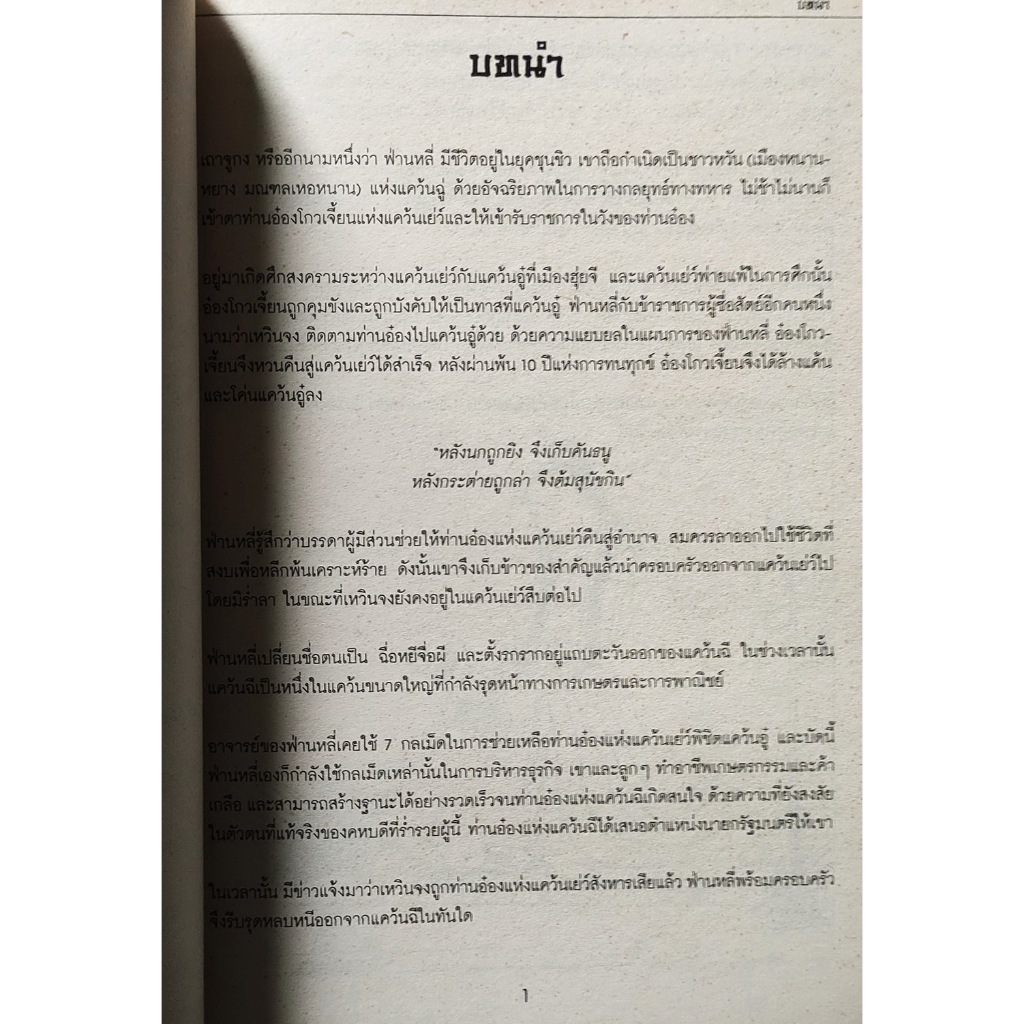 บทนำ
บทนำ
เถาจูกง หรืออีกนามหนึ่งว่า ฟ่านหลี่ มีชีวิตอยู่ในยุคชุนชิว เขาถือกำเนิดเป็นชาวหวัน (เมืองหนาน-
หยาง มณฑลเหอหนาน) แห่งแคว้นฉู่ ด้วยอัจฉริยภาพในการวางกลยุทธ์ทางทหาร ไม่ช้าไม่นานก็
เข้าตาท่านอ๋องโกวเจี้ยนแห่งแคว้นเย่ว์และให้เข้ารับราชการในวังของท่านอ๋อง
อยู่มาเกิดศึกสงครามระหว่างแคว้นเย่ว์กับแคว้นอู๋ที่เมืองฮุ่ยจี และแคว้นเย่ว์พ่ายแพ้ในการศึกนั้น
อ๋องโกวเจี้ยนถูกคุมขังและถูกบังคับให้เป็นทาสที่แคว้นอู๋ ฟ่านหลี่กับข้าราชการผู้ซื่อสัตย์อีกคนหนึ่ง
นามว่าเหวินจง ติดตามท่านอ๋องไปแคว้นอู๋ด้วย ด้วยความแยบยลในแผนการของฟ่านหลี่ อ๋องโกว-
เจี้ยนจึงหวนคืนสู่แคว้นเย่ว์ได้สำเร็จ หลังผ่านพ้น 10 ปีแห่งการทนทุกข์ อ๋องโกวเจี้ยนจึงได้ล้างแค้น
และโค่นแคว้นอู๋ลง
"หลังนกถูกยิง จึงเก็บคันธนู
หลังกระต่ายถูกล่า จึงต้มสุนัขกิน"
ฟ่านหลี่รู้สึกว่าบรรดาผู้มีส่วนช่วยให้ท่านอ๋องแห่งแคว้นเย่ว์คืนสู่อำนาจ สมควรลาออกไปใช้ชีวิตที่
สงบเพื่อหลีกพ้นเคราะห์ร้าย ดังนั้นเขาจึงเก็บข้าวของสำคัญแล้วนำครอบครัวออกจากแคว้นเย่ว์ไป
โดยมิร่ำลา ในขณะที่เหวินจงยังคงอยู่ในแคว้นเย่ว์สืบต่อไป
ฟ่านหลี่เปลี่ยนชื่อตนเป็น ฉื่อหยีจื่อผี และตั้งรกรากอยู่แถบตะวันออกของแคว้นฉี ในช่วงเวลานั้น
แคว้นฉีเป็นหนึ่งในแคว้นขนาดใหญ่ที่กำลังรุดหน้าทางการเกษตรและการพาณิชย์
อาจารย์ของฟ่านหลี่เคยใช้ 7 กลเม็ดในการช่วยเหลือท่านอ๋องแห่งแคว้นเย่ว์พิชิตแคว้นอู๋ และบัดนี้
ฟ่านหลี่เองก็กำลังใช้กลเม็ดเหล่านั้นในการบริหารธุรกิจ เขาและลูกๆ ทำอาชีพเกษตรกรรมและค้า
เกลือ และสามารถสร้างฐานะได้อย่างรวดเร็วจนท่านอ๋องแห่งแคว้นฉีเกิดสนใจ ด้วยความที่ยังสงสัย
ในตัวตนที่แท้จริงของคหบดีที่ร่ำรวยผู้นี้ ท่านอ๋องแห่งแคว้นฉีได้เสนอตำแหน่งนายกรัฐมนตรีให้เขา
ในเวลานั้น มีข่าวแจ้งมาว่าเหวินจงถูกท่านอ๋องแห่งแคว้นเย่ว์สังหารเสียแล้ว ฟ่านหลี่พร้อมครอบครัว
จึงรีบรุดหลบหนีออกจากแคว้นฉีในทันใด
1